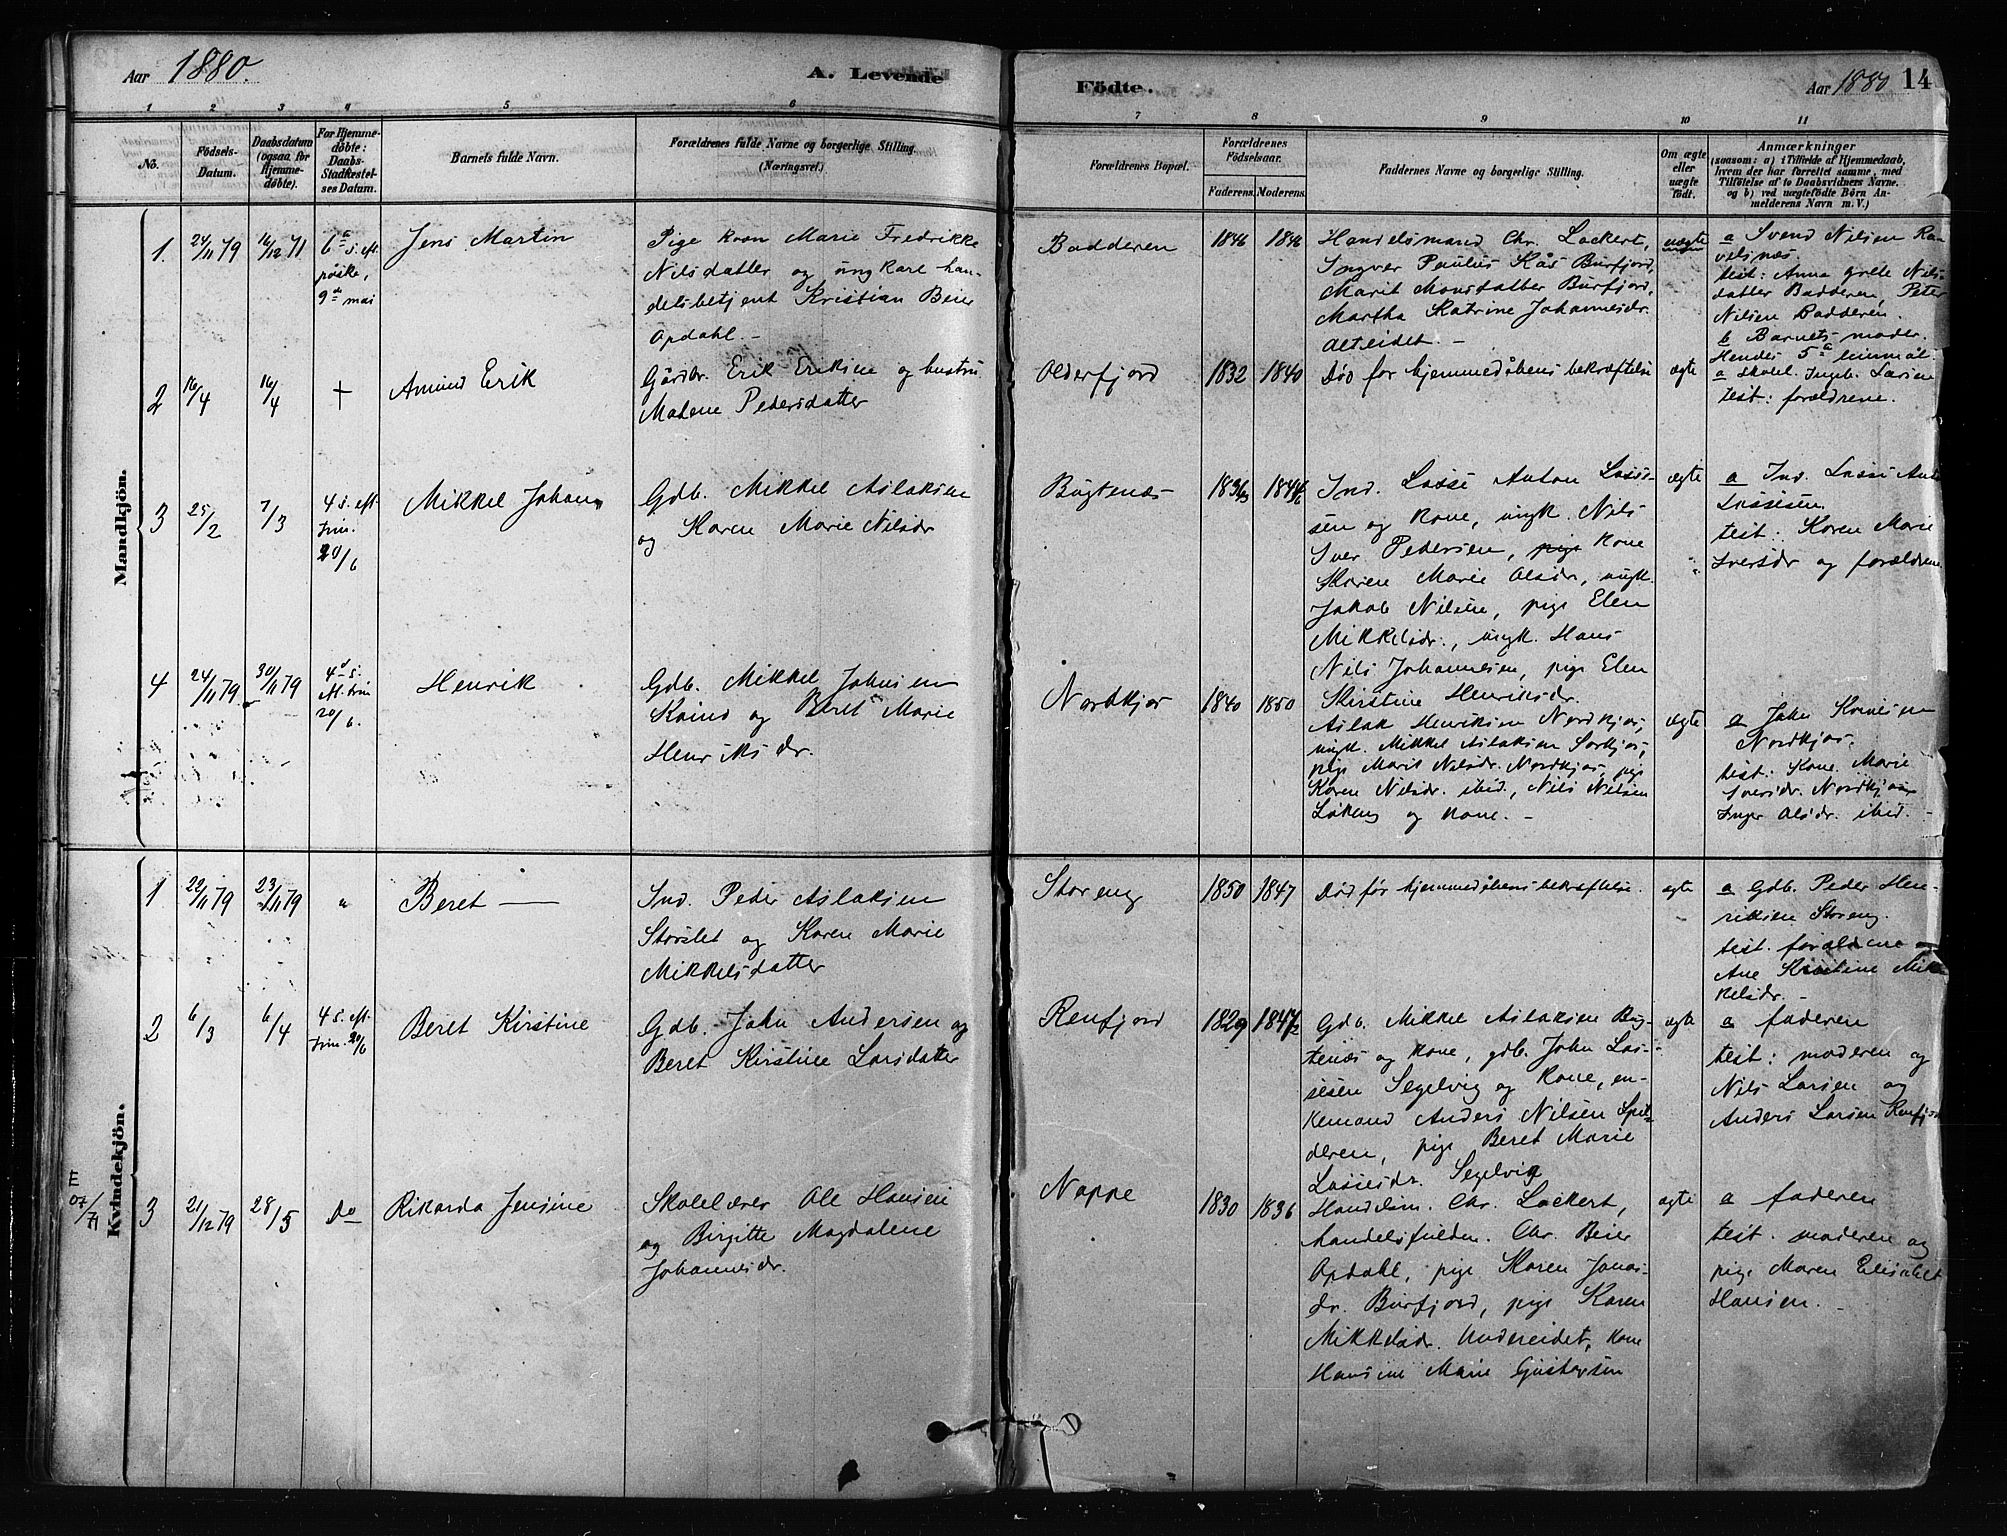 Aar 1880.
A. Levende
Födte.
Aar 1880
14
1 2 3 4 5 6 7 8 9 10 11
No.
Födsels-
Datum.
Daabsdatum
(ogsaa for
Hjemme-
døbte).
For Hjemme-
døbte:
Daabs-
Stadfæstel-
ses Datum.
Barnets fulde Navn.
Forældrenes fulde Navne og borgerlige Stilling
(Næringsvei.)
Forældrenes Bopæl.
Forældrenes
Födselsaar.
Faderens. Moderens.
Faddernes Navne og borgerlige Stilling.
Om ægte
eller
uægte
födt.
Anmærkninger
(saasom: a) i Tilfælde af Hjemmedaab,
hvem der har forrettet samme, med
Tilföielse af to Daabsvidners Navne.
og b) ved uægtefödte Börn An-
melderens Navn m. V.)
Mandkjön.
1
24/11 79
6te s. eft.
påske,
9de mai
Jens Martin
Pige kvæn Marie Fredrikke
Nilsdatter og ungkarl han-
delsbetjent Kristian Beier
Opdahl. -
Badderen
1846
1846
Handelsmand Chr. Lockert,
Ingver Paulus Kås Burfjord,
Marit Monsdatter Burfjord,
Martha Katrine Johannesdr.
Alteidet. -
uægte
a Svend Nilsen
test: Anna Grete Nils-
datter Badderen, Peter
Nilsen Badderen.
b Barnets moder.
Hendes 5te leiermål.
2
16/4
16/4
+
Amund Erik
Gårdbr. Erik Eriksen og hustru
Malene Pedersdatter
Olderfjord
1832
1840
Død før hjemmedåbens bekræftelse
ægte
a Skolel. Ingeb. Larsen
test: forældrene.
3
25/2
7/3
4 s. eft.
trin.
20/6
Mikkel Johan
Gdb. Mikkel Aslaksen
og Karen Marie Nilsdr
Bugtenæs
Ind. Lasse Anton Lass-
sen og kone, ungk. Nils
Iver Pedersen, pige kone
Karen Marie Olsdr, ungk.
Jakob Nilsen, pige Elen
Mikkelsdr., ungk. Hans
Nils Johannesen, pige Elen
Kirstine Henriksdr.
ægte
a Ind. Lasse Ant.
Lassesen.
test: Karen Marie
Iversdr og forældrene
4
24/11 79
30/11 79
4de s.
eft. trin
20/6.
Henrik
Gdb. Mikkel Johnsen
Kvind og Beret Marie
Henriksdr.
Nordkjos
1840
1850
Aslak Henriksen Nordkjos,
ungk. Mikkel Aslaksen Sørkjos,
pige Marit Nilsdr. Nordkjos, pige
Karen Nilsdr. ibid., Nils Nilsen
Løkeng og kone. -
ægte
a John
Nordkjos.
test: Kone Marie
Iversdr. Nordkjos
Inger Olsdr. ibid. -
Kvindekjön.
1
22/11 79
23/11 79
"
Beret
Ind. Peder Aslaksen
Storslet og Karen Marie
Mikkelsdatter
Storeng
1850
1847
Død før hjemmedåbens bekræftelse.
ægte
a Gdb. Peder Hen-
riksen Storeng.
test. forældrene og
Ane Kirstine Mik-
kelsdr. -
2
6/3
6/4
4 s. eft.
trin. 20/6
Beret Kirstine
Gdb. John Andersen og
Beret Kirstine Larsdatter
Renfjord
1829
1847/2
Gdb. Mikkel Aslaksen Bug-
tenæs og kone, gdb. John Las-
sesen Segelvig og kone, en-
kemand Anders Nilsen Spil-
deren, pige Beret Marie
Lassesdr. Segelvik
ægte
a faderen
test: moderen og
Nils Larsen og
Anders Larsen Renfjord
3
21/12 79
28/5
Do
Rikarda Jensine
Skolelærer Ole Hansen
og Birgitte Magdalene
Johannesdr.
Noppe
1830
1836
Handelsm. Chr. Lockert,
handelsfuldm. Chr. Beier
Opdahl, pige Karen Jonas-
dr. Burfjord, pige Karen
Mikkelsdr. Undereidet, kone
Hansine Marie Gustavsen
ægte
a faderen
test. moderen og
pige Maren Elisabet
Hansen. -